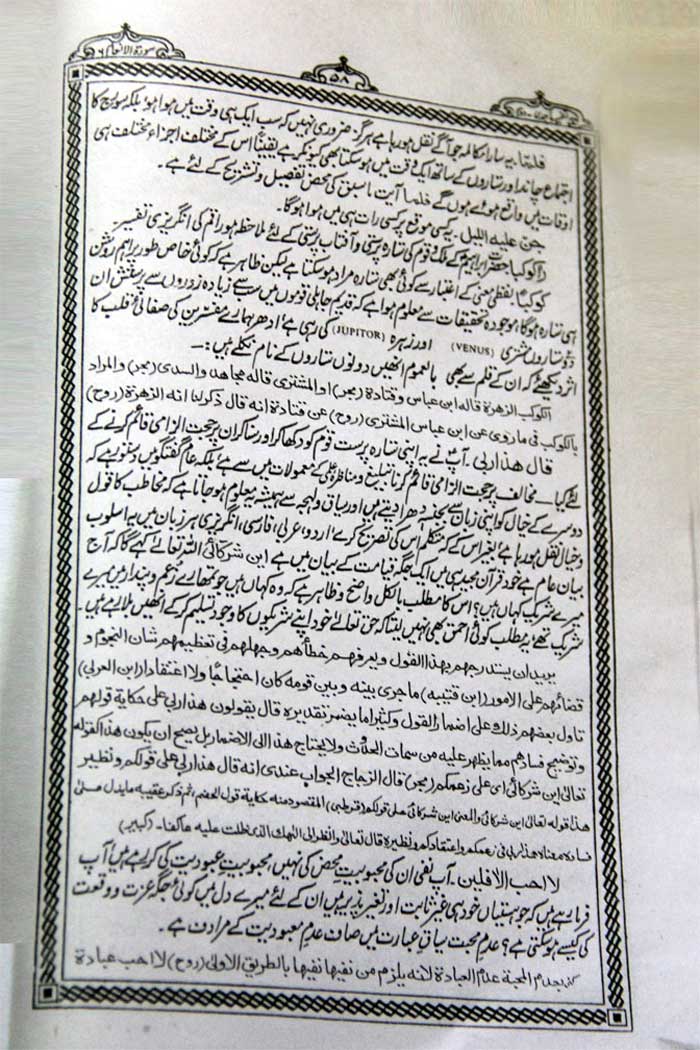 سورۃ الانعام ۶
۵۸
فلمّا۔ یہ سارا مکالمہ جو آگے نقل ہو رہا ہے ہرگز ضروری نہیں کہ سب ایک ہی وقت میں ہوا ہو بلکہ سورج کا
اجتماع چاند اور ستاروں کے ساتھ ایک وقت میں ہو سکتا بھی کیونکر ہے یقیناً اس کے مختلف اجزاء مختلف ہی
اوقات میں واقع ہوئے ہوں گے فلما آیت ماسبق کی محض تفصیل وتشریح کے لئے ہے۔
جن علیہ اللیل۔ یعنی موقع پر کسی رات ہی میں ہوا ہوگا۔
راٰکوکبا حضرت ابراہیمؑ کے ملک وقوم کی ستارہ پرستی وآفتاب پرستی کے لئے ملاحظہ ہو راقم کی انگریزی تفسیر
کوکبا لفظی معنی کے اعتبار سے کوئی بھی ستارہ مراد ہو سکتا ہے لیکن ظاہر ہے کہ کوئی خاص طور پر اہم روشن
ہی ستارہ ہوگا، موجودہ تحقیقات سے معلوم ہوا ہے کہ قدیم جاہلی قوموں میں سب سے زیادہ زوروں سے پرستش ان
دو ستاروں مشتری (VENUS) اور زہرہ (JUPITOR) کی رہی ہے، ادھر ہمارے مفسرین کی صفائی قلب کا
اثر دیکھئے کہ ان کے قلم سے بھی بالعموم انھیں دونوں ستاروں کے نام نکلے ہیں:۔
الکوکب الزھرة قالہ ابن عباس وقتادة (بحر) او المشتری قالہ مجاھد والسدی (بحر) والمراد
بالکوکب فی ماروی عن ابن عباس المشتری (روح) عن قتادة انہ قال ذکرلنا انہ الزھرة (روح)
قال ھذا ربی۔ آپؑ نے یہ اپنی ستارہ پرست قوم کو دکھا کر اور سنا کر ان پر حجت الزامی قائم کرنے کے
لئے کہا۔ مخالف پر حجت الزامی قائم کرنا تبلیغ ومناظرہ کے معمولات میں سے ہے بلکہ عام گفتگو میں دستور ہے کہ
دوسرے کے خیال کو اپنی زبان سے بجنسہٖ دھرا دیتے ہیں اور سیاق ولہجہ سے ہمیشہ یہ معلوم ہو جاتا ہے کہ مخاطب کا قول
وخیال نقل ہو رہا ہے، بغیر اس کے کہ متکلم اس کی تصریح کرے، اردو، عربی، فارسی، انگریزی ہر زبان میں یہ اسلوب
بیان عام ہے خود قرآن مجید ہی میں ایک جگہ قیامت کے بیان میں ہے این شرکائی اللہ تعالیٰ کہے گا کہ آج
میرے شریک کہاں ہیں؟ اس کا مطلب بالکل واضح وظاہر ہے کہ وہ کہاں ہیں جو تمھارے زعم وپندار میں میرے
شریک تھے، یہ مطلب کوئی احمق بھی نہیں لیتا کہ حق تعالیٰ خود اپنے شریکوں کا وجود تسلیم کرکے انھیں بلا رہے ہیں۔
یرید ان یستدرجھم بھذا القول ویعرفھم خطأھم وجھلھم فی تعظیمھم شان النجوم و
قضائھم علی الامور (ابن قتیبہ) ما جری بینہ وبین قومہ کان احتجاجًا ولا اعتقادا (ابن العربی)
تاول بعضھم ذلک علی اضمار القول وکثیرا ما یضمر تقدیرہ قال یقولون ھذا ربی علی حکایة قولھم
وتوضیح فسادھم مما یظھر علیہ من سمات الحدث ولا یحتاج ھذا الی الاضمار بل یصح ان یکون ھذا کقولہ
تعالیٰ این شرکائی ای علی زعمکم (بحر) قال الزجاج الجواب عندی انہ قال ھذا ربی علی قولکم ونظیر
ھذا قولہ تعالیٰ این شرکائی والمعنی این شرکائی علی قولکم (قرطبی) المقصود منہ حکایة قول الخصم ثم ذکر عقیبہ ما یدل علی
فسادہ معناہ ھذا ربی فی زعمکم واعتقادکم ونظیرہ قال تعالیٰ وانظر الی الھک الذی ظلت علیہ عاکفا۔ (کبیر)
لا احب الافلین۔ آپ نفی ان کی محبوبیت محض کی نہیں محبوبیت عبودیت کی کر رہے ہیں، آپ
فرما رہے ہیں کہ جو ہستیاں خود ہی غیر ثابت اور تغیر پذیر ہیں ان کے لئے میرے دل میں کوئی جگہ عزت ووقعت
کی کیسے ہو سکتی ہے؟ عدم محبت سیاق عبارت میں صاف عدم معبودیت کے مرادف ہے۔
بعدم المحبة عدم العبادة لانہ یلزم من نفیھا نفیھا بالطریق الاولیٰ (روح) لا احب عبادة